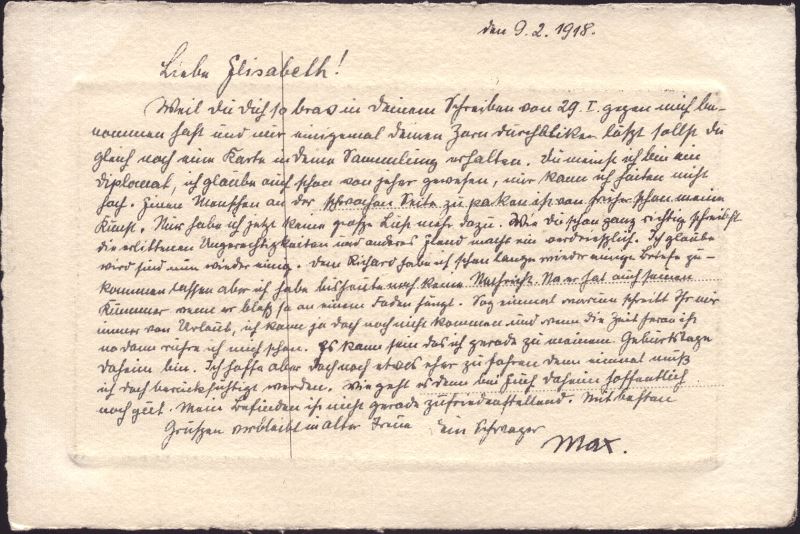 den 9.2.1918.
Liebe Elisabeth!
Weil du dich so brav in deinem Schreiben von 29. I. gegen mich be-
nommen hast und mir einigemal deinen Zorn durchbliken läßt sollst du
gleich noch eine Karte in deine Sammlung erhalten. Du meinst ich bin ein
Diplomat, ich glaube auch schon von jeher gewesen, nur kann ich halten nicht
hoch. Einem Menschen an der schwachen Seite zu paken ist von früher schon meine
Kunst. Nur habe ich jetzt keine große Lust mehr dazu. Wie du schon ganz richtig schreibst
die erlittenen Ungerechtigkeiten und anderes Elend macht ein verdrießlich. Ich glaube
wird sind nun wieder einig. Dem Richard habe ich schon lange wieder einige Briefe zu-
kommen lassen aber ich habe bis heute noch keine Nachricht. Na er hat auch seinen
Kummer wenn er bloß so an einem Faden hängt. Sag einmal warum schreibt Ihr mir
immer von Urlaub, ich kann ja doch noch nicht kommen und wenn die Zeit heran ist
na dann rühre ich mich schon. Es kann sein das ich gerade zu meinem Geburtstage
daheim bin. Ich hoffe aber doch noch etwas eher zu fahren denn einmal muß
ich doch berücksichtigt werden. Wie geht es denn bei Euch daheim hoffentlich
noch gut. Mein Befinden ist nicht gerade zufriedenstellend. Mit besten
Grüßen verbleibt in alter Treue Dein Schwager
Max.